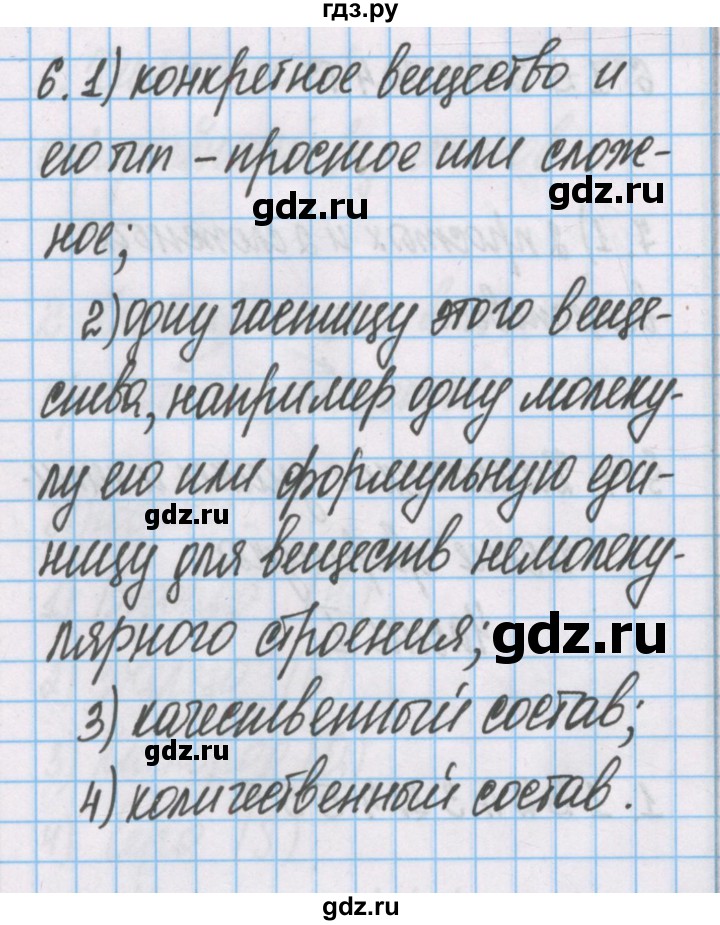 гдз.ру
6. 1) конкретное вещество и
его тип – простое или сложе-
gdz.ru
gdz.ru
ное;
2) одну частицу этого веще-
ства, например одну молеку-
лу его или формульную еди-
gdz.ru
ницу для веществ немолеку-
лярного строения;
gdz.ru
3) качественный состав;
gdz.ru
4) количественный состав.
gdz.ru